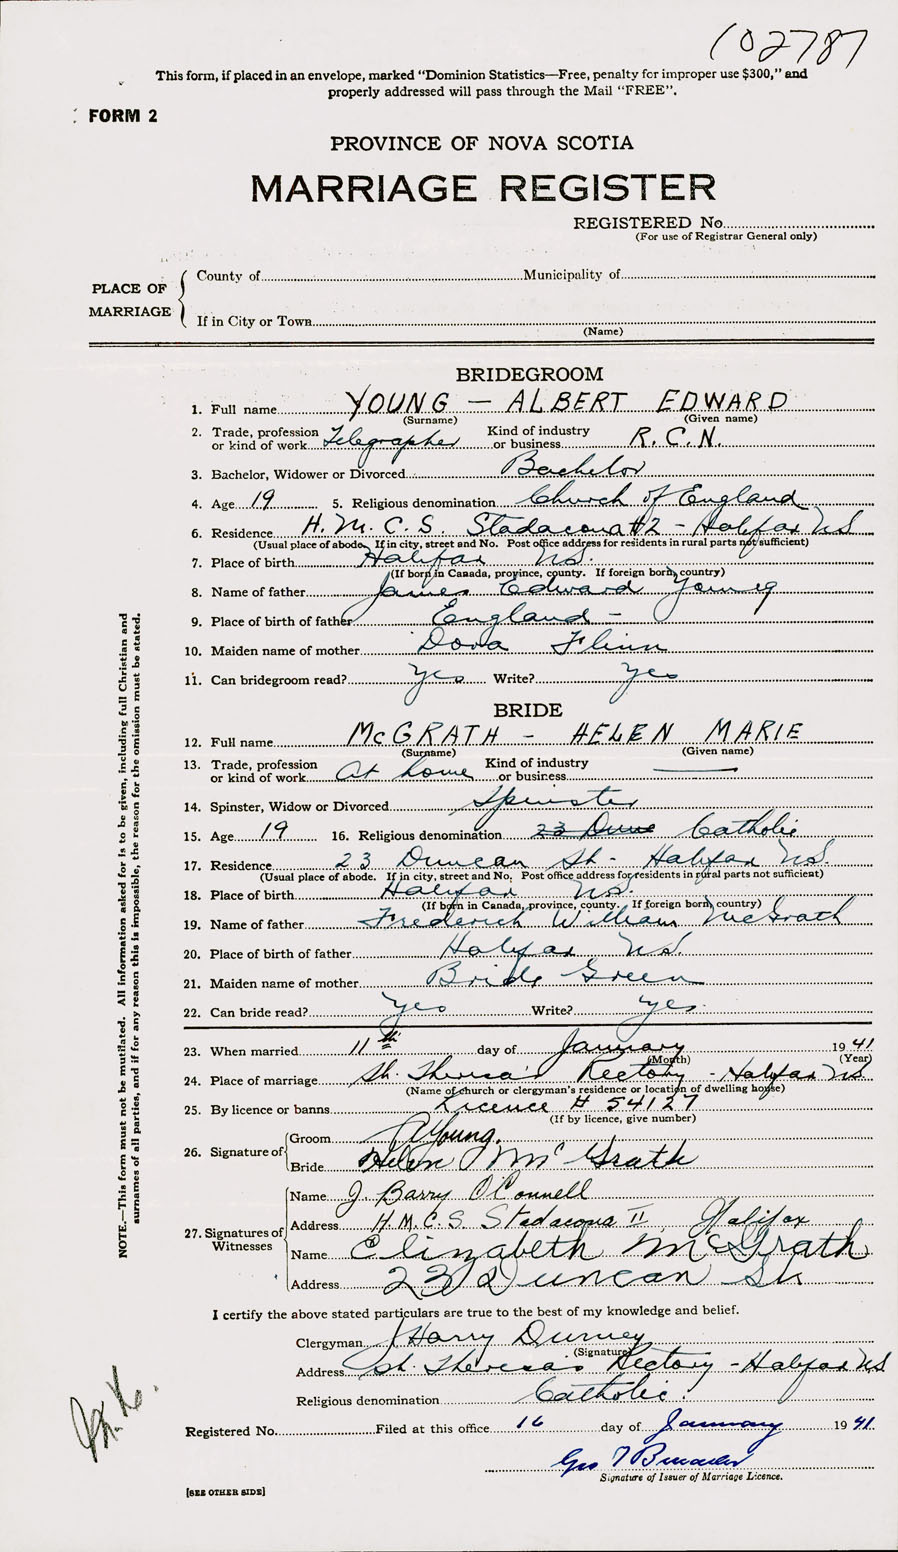 102787
This form, if placed in an envelope, marked "Dominion Statistics—Free, penalty for improper use $300," and
properly addressed will pass through the Mail "FREE".
FORM 2
PROVINCE OF NOVA SCOTIA
MARRIAGE REGISTER
REGISTERED No.
(For use of Registrar General only)
PLACE OF MARRIAGE
County of Municipality of
If in City or Town
(Name)
BRIDEGROOM
1. Full name YOUNG — ALBERT EDWARD
(Surname) (Given name)
2. Trade, profession or kind of work Telegrapher Kind of industry or business R.C.N.
3. Bachelor, Widower or Divorced Bachelor
4. Age 19 5. Religious denomination Church of England
6. Residence H.M.C.S. Stadacona #2 - Halifax NS
(Usual place of abode. If in city, street and No. Post office address for residents in rural parts not sufficient)
7. Place of birth Halifax NS.
(If born in Canada, province, county. If foreign born, country)
8. Name of father James Edward Young
9. Place of birth of father England -
10. Maiden name of mother Dora Flinn
11. Can bridegroom read? Yes Write? Yes
BRIDE
12. Full name McGRATH - HELEN MARIE
(Surname) (Given name)
13. Trade, profession or kind of work At home Kind of industry or business —
14. Spinster, Widow or Divorced Spinster
15. Age 19 16. Religious denomination 23 Dunc Catholic
17. Residence 23 Duncan St - Halifax NS.
(Usual place of abode. If in city, street and No. Post office address for residents in rural parts not sufficient)
18. Place of birth Halifax NS.
(If born in Canada, province, county. If foreign born, country)
19. Name of father Frederick William McGrath
20. Place of birth of father Halifax NS.
21. Maiden name of mother Bride Green
22. Can bride read? Yes Write? Yes.
23. When married 11th day of January 1941
(Month) (Year)
24. Place of marriage St. Theresa's Rectory - Halifax NS
(Name of church or clergyman's residence or location of dwelling house)
25. By licence or banns Licence # 54127
(If by licence, give number)
26. Signature of
Groom Young.
Bride Helen McGrath
27. Signatures of Witnesses
Name J. Barry O'Connell
Address H.M.C.S. Stadacona II, Halifax
Name Elizabeth McGrath
Address 23 Duncan St
I certify the above stated particulars are true to the best of my knowledge and belief.
Clergyman J Harry Durney
(Signature)
Address St. Theresa's Rectory - Halifax NS
Religious denomination Catholic.
Registered No. Filed at this office 16 day of January 1941.
Geo
Signature of Issuer of Marriage Licence.
[SEE OTHER SIDE]
NOTE.—This form must not be mutilated. All information asked for is to be given, including full Christian and
surnames of all parties, and if for any reason this is impossible, the reason for the omission must be stated.